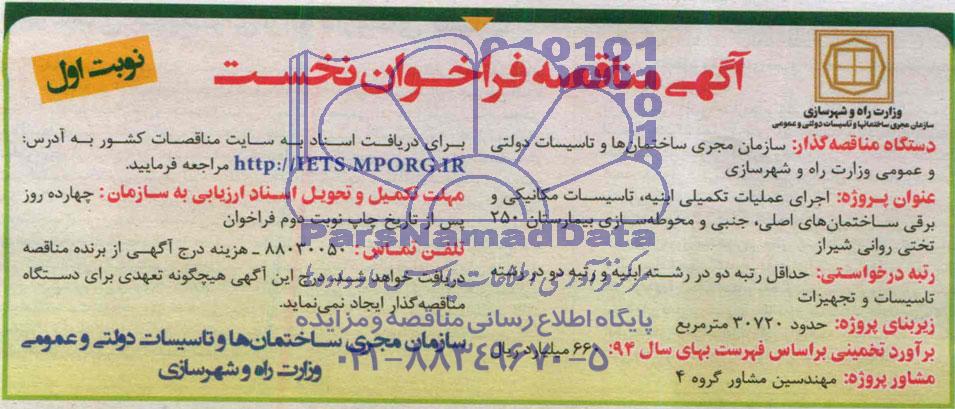 نوبت اول
آگهی مناقصه فراخوان نخست
وزارت راه و شهرسازی
سازمان مجری ساختمانها و تاسیسات دولتی و عمومی
دستگاه مناقصه‌گذار: سازمان مجری ساختمان‌ها و تاسیسات دولتی
و عمومی وزارت راه و شهرسازی
عنوان پروژه: اجرای عملیات تکمیلی ابنیه، تاسیسات مکانیکی و
برقی ساختمان‌های اصلی، جنبی و محوطه‌سازی بیمارستان ۲۵۰
تختی روانی شیراز
رتبه درخواستی: حداقل رتبه دو در رشته ابنیه و رتبه دو در رشته
تاسیسات و تجهیزات
زیربنای پروژه: حدود ۳۰۷۲۰ مترمربع
برآورد تخمینی براساس فهرست بهای سال ۹۴: ۶۶۰ میلیارد ریال
مشاور پروژه: مهندسین مشاور گروه ۴
برای دریافت اسناد به سایت مناقصات کشور به آدرس:
http://IETS.MPORG.IR مراجعه فرمایید.
مهلت تکمیل و تحویل اسناد ارزیابی به سازمان: چهارده روز
پس از تاریخ چاپ نوبت دوم فراخوان
تلفن تماس: ۸۸۰۳۰۰۵۰ ـ هزینه درج آگهی از برنده مناقصه
دریافت خواهد شد، درج این آگهی هیچگونه تعهدی برای دستگاه
مناقصه‌گذار ایجاد نمی‌نماید.
سازمان مجری ساختمان‌ها و تاسیسات دولتی و عمومی
وزارت راه و شهرسازی
ParsNamadData
پایگاه اطلاع رسانی مناقصه و مزایده
۰۲۱-۸۸۳۴۹۶۷۰-۵